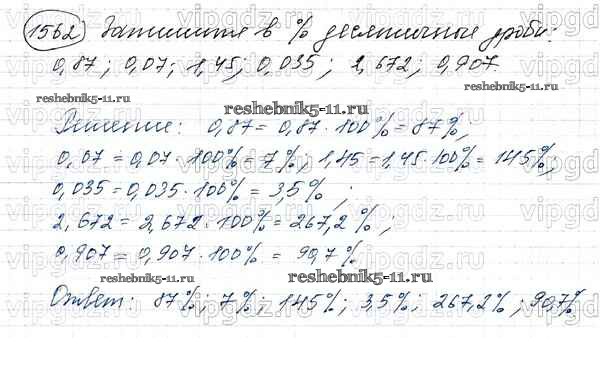 1562 Запишите в % десятичные дроби:
0,87; 0,07; 1,45; 0,035; 2,672; 0,907
reshebnik5-11.ru reshebnik5-11.ru
Решение: 0,87 = 0,87·100% = 87%,
0,07 = 0,07·100% = 7%, 1,45 = 1,45·100% = 145%;
0,035 = 0,035·100% = 3,5%;
2,672 = 2,672·100% = 267,2%;
0,907 = 0,907·100% = 90,7%
reshebnik5-11.ru reshebnik5-11.ru
Ответ: 87%; 7%; 145%; 3,5%; 267,2%; 90,7%
vipgdz.ru vipgdz.ru vipgdz.ru